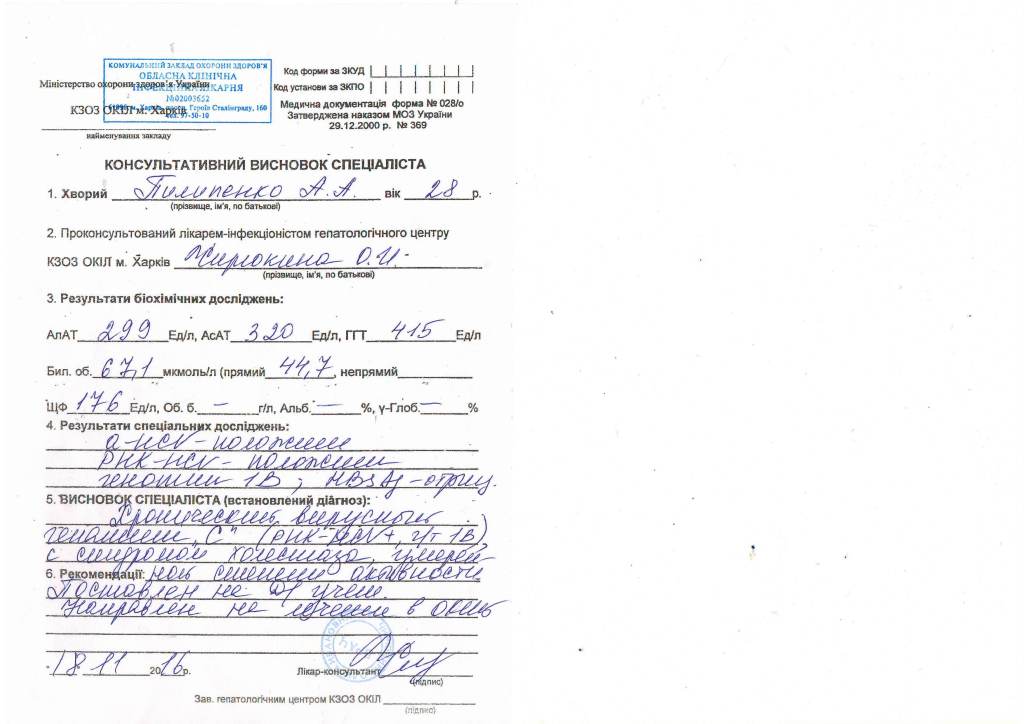 КОМУНАЛЬНИЙ ЗАКЛАД ОХОРОНИ ЗДОРОВ'Я
ОБЛАСНА КЛІНІЧНА
ІНФЕКЦІЙНА ЛІКАРНЯ
№02003652
61096, м. Харків, просп. Героїв Сталінграду, 160
тел. 97-50-10
Міністерство охорони здоров'я України
КЗОЗ ОКІЛ м. Харків
найменування закладу
Код форми за ЗКУД
Код установи за ЗКПО
Медична документація форма № 028/о
Затверджена наказом МОЗ України
29.12.2000 р. № 369
КОНСУЛЬТАТИВНИЙ ВИСНОВОК СПЕЦІАЛІСТА
1. Хворий Пилипенко А.А. вік 28 р.
(прізвище, ім'я, по батькові)
2. Проконсультований лікарем-інфекціоністом гепатологічного центру
КЗОЗ ОКІЛ м. Харків О.И.
(прізвище, ім'я, по батькові)
3. Результати біохімічних досліджень:
АлАТ 299 Ед/л, АсАТ 320 Ед/л, ГГТ 415 Ед/л
Бил. об. 67,1 мкмоль/л (прямий 44,7, непрямий
ЩФ 176 Ед/л, Об. б. – г/л, Альб. – %, γ-Глоб. – %
4. Результати спеціальних досліджень:
а-HCV - положит
РНК-HCV - положит
генотип 1В ; HBsAg - отриц.
5. ВИСНОВОК СПЕЦІАЛІСТА (встановлений діагноз):
Хронический вирусный
гепатит „С" (РНК-HCV+, г/т 1В)
с синдромом холестаза, умерен-
6. Рекомендації: ной степени активности
Поставлен на Д учет.
Направлен на лечение в ОКИБ
18. 11 2016р.
Лікар-консультант
(підпис)
Зав. гепатологічним центром КЗОЗ ОКІЛ
(підпис)